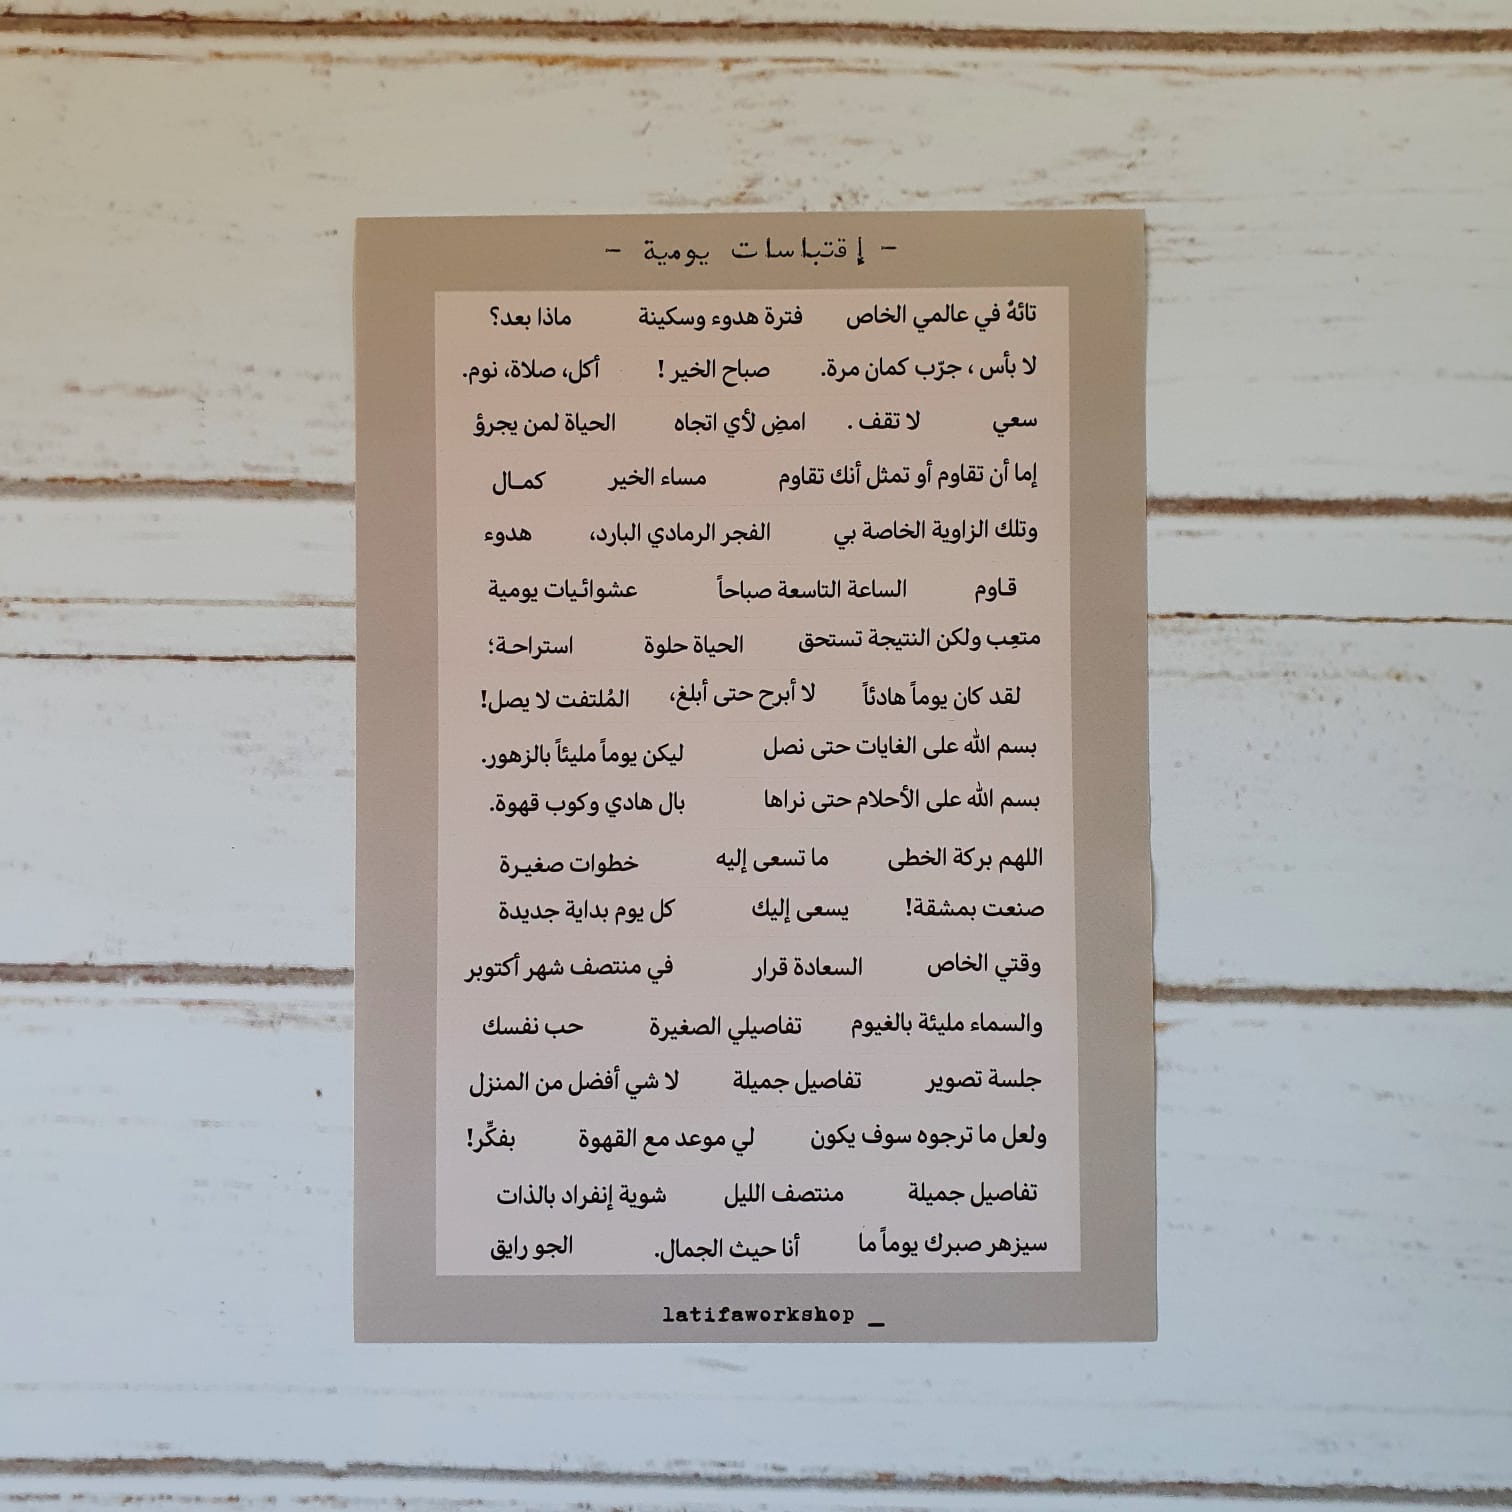 - إقتباسات يومية -
تائهٌ في عالمي الخاص فترة هدوء وسكينة ماذا بعد؟
لا بأس ، جرّب كمان مرة. صباح الخير ! أكل، صلاة، نوم.
سعي لا تقف . امضِ لأي اتجاه الحياة لمن يجرؤ
إما أن تقاوم أو تمثل أنك تقاوم مساء الخير كمـال
وتلك الزاوية الخاصة بي الفجر الرمادي البارد، هدوء
قـاوم الساعة التاسعة صباحاً عشوائيات يومية
متعِب ولكن النتيجة تستحق الحياة حلوة استراحـة؛
لقد كان يوماً هادئاً لا أبرح حتى أبلغ، المُلتفت لا يصل!
بسم الله على الغايات حتى نصل ليكن يوماً مليئاً بالزهور.
بسم الله على الأحلام حتى نراها بال هادي وكوب قهوة.
اللهم بركة الخطى ما تسعى إليه خطوات صغيـرة
صنعت بمشقة! يسعى إليك كل يوم بداية جديدة
وقتي الخاص السعادة قرار في منتصف شهر أكتوبر
والسماء مليئة بالغيوم تفاصيلي الصغيرة حب نفسك
جلسة تصوير تفاصيل جميلة لا شي أفضل من المنزل
ولعل ما ترجوه سوف يكون لي موعد مع القهوة بفكِّر!
تفاصيل جميلة منتصف الليل شوية إنفراد بالذات
سيزهر صبرك يوماً ما أنا حيث الجمال. الجو رايق
latifaworkshop _